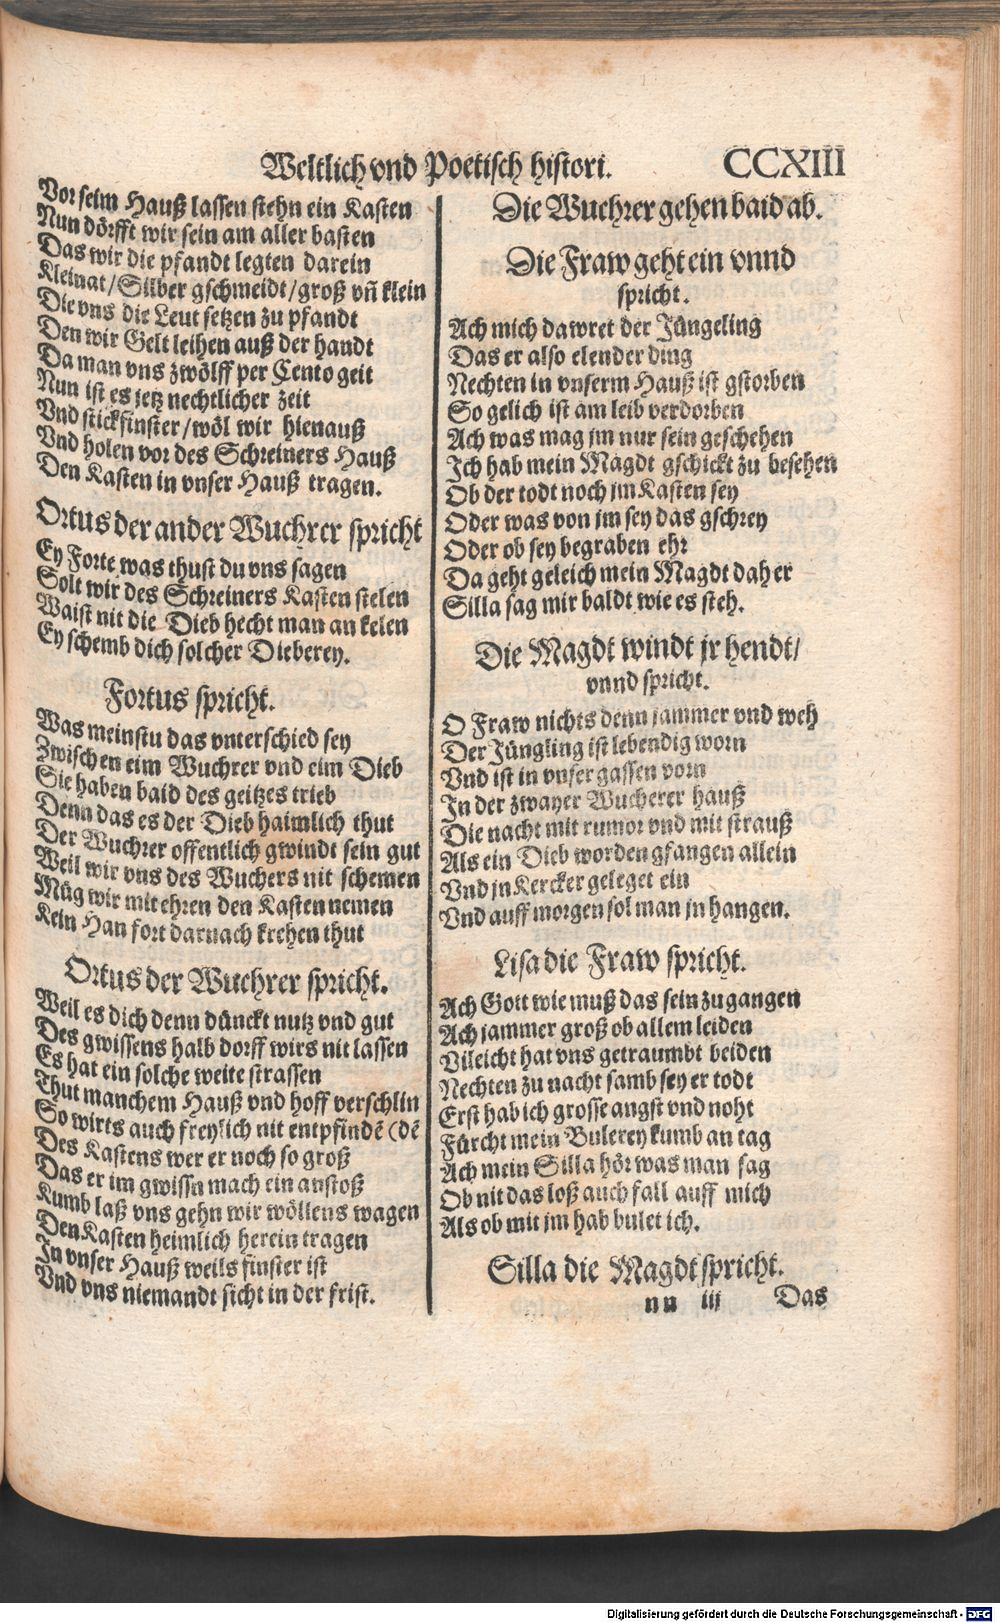 Weltlich vnd Poetisch histori. CCXIII
Vor seim Hauß lassen stehn ein Kasten
Nun dörfft wir sein am aller basten
Das wir die pfandt legten darein
Kleinat/Silber gschmeidt/groß vñ klein
Die vns die Leut setzen zu pfandt
Den wir Gelt leihen auß der handt
Da man vns zwölff per Cento geit
Nun ist es jetz nechtlicher zeit
Vnd stickfinster/wöl wir hienauß
Vnd holen vor des Schreiners Hauß
Den Kasten in vnser Hauß tragen.
Ortus der ander Wuchrer spricht
Ey Forte was thust du vns sagen
Solt wir des Schreiners Kasten stelen
Waist nit die Dieb hecht man an kelen
Ey schemb dich solcher Dieberey.
Fortus spricht.
Was meinstu das vnterschied sey
Zwischen eim Wuchrer vnd eim Dieb
Sie haben baid des geitzes trieb
Denn das es der Dieb haimlich thut
Der Wuchrer offentlich gwindt sein gut
Weil wir vns des Wuchers nit schemen
Müg wir mit ehren den Kasten nemen
Kein Han fort darnach krehen thut
Ortus der Wuchrer spricht.
Weil es dich denn dünckt nutz vnd gut
Des gwissens halb dorff wirs nit lassen
Es hat ein solche weite strassen
Thut manchem Hauß vnd hoff verschlin
So wirts auch freylich nit entpfindē (dē
Des Kastens wer er noch so groß
Das er im gwissn mach ein anstoß
Kumb laß vns gehn wir wöllens wagen
Den Kasten heimlich herein tragen
In vnser Hauß weils finster ist
Vnd vns niemandt sicht in der frist.
Die Wuchrer gehen baid ab.
Die Fraw geht ein vnnd
spricht.
Ach mich dawret der Jüngeling
Das er also elender ding
Nechten in vnserm Hauß ist gstorben
So gelich ist am leib verdorben
Ach was mag jm nur sein geschehen
Ich hab mein Magdt gschickt zu besehen
Ob der todt noch jm Kasten sey
Oder was von jm sey das gschrey
Oder ob sey begraben ehr
Da geht geleich mein Magdt daher
Silla sag mir baldt wie es steh.
Die Magdt windt jr hendt/
vnnd spricht.
O Fraw nichts denn jammer vnd weh
Der Jüngling ist lebendig worn
Vnd ist in vnser gassen vorn
In der zwayer Wucherer hauß
Die nacht mit rumor vnd mit strauß
Als ein Dieb worden gfangen allein
Vnd jn Kercker geleget ein
Vnd auff morgen sol man jn hangen.
Lisa die Fraw spricht.
Ach Gott wie muß das sein zugangen
Ach jammer groß ob allem leiden
Vileicht hat vns getraumbt beiden
Nechten zu nacht samb sey er todt
Erst hab ich grosse angst vnd noht
Fürcht mein Bulerey kumb an tag
Ach mein Silla hör was man sag
Ob nit das loß auch fall auff mich
Als ob mit jm hab bulet ich.
Silla die Magdt spricht.
nn iii Das
Digitalisierung gefördert durch die Deutsche Forschungsgemeinschaft - DFG